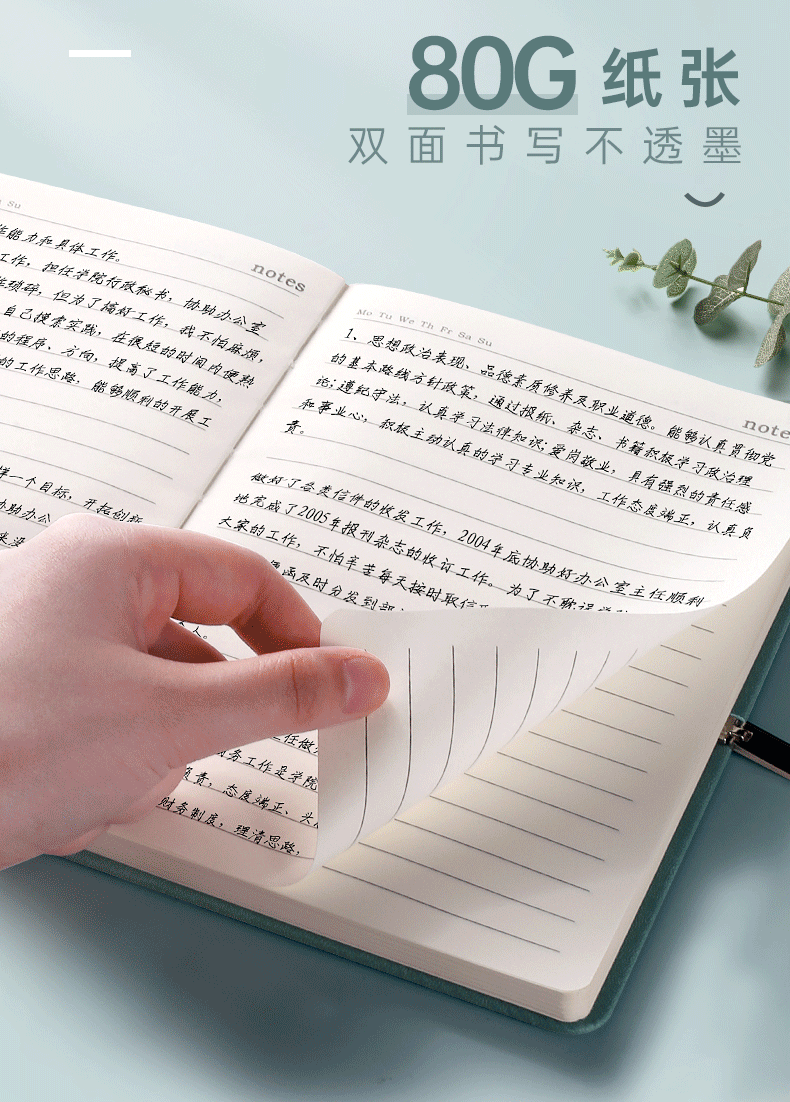 80G 纸张
双面书写不透墨
Su
作能力和具体工作。
工作，担任学院行政秘书，协助办公室
作琐碎，但为了搞好工作，我不怕麻烦，
自己摸索实践，在很短的时间内便熟
的程序、方向，提高了工作能力，
的工作思路，能够顺利的开展工
notes
一个目标，开拓创新
协助办公
Mo Tu We Th Fr Sa Su
notes
1、思想政治表现、品德素质修养及职业道德。能够认真贯彻党
的基本路线方针政策，通过报纸、杂志、书籍积极学习政治理
论；遵纪守法，认真学习法律知识；爱岗敬业，具有强烈的责任感
和事业心，积极主动认真的学习专业知识，工作态度端正，认真负
责。
做好了各类信件的收发工作，2004年底协助好办公室主任顺利
地完成了2005年报刊杂志的收订工作。为了不耽误
大家的工作，不怕辛苦每天按时取信
函及时分发到部
人。
任做
务工作是学院
负责，态度端正、头
财务制度，理清思路，